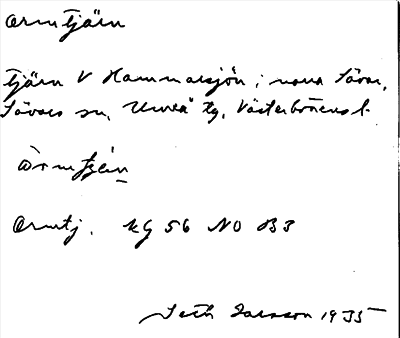 Ormtjärn
tjärn V Hammarsjön i norra Sävar,
Sävars sn, Umeå tg, Västerbottens l.
òrmtjén
Ormtj. kg 56 NO B3
Seth Larsson 1935